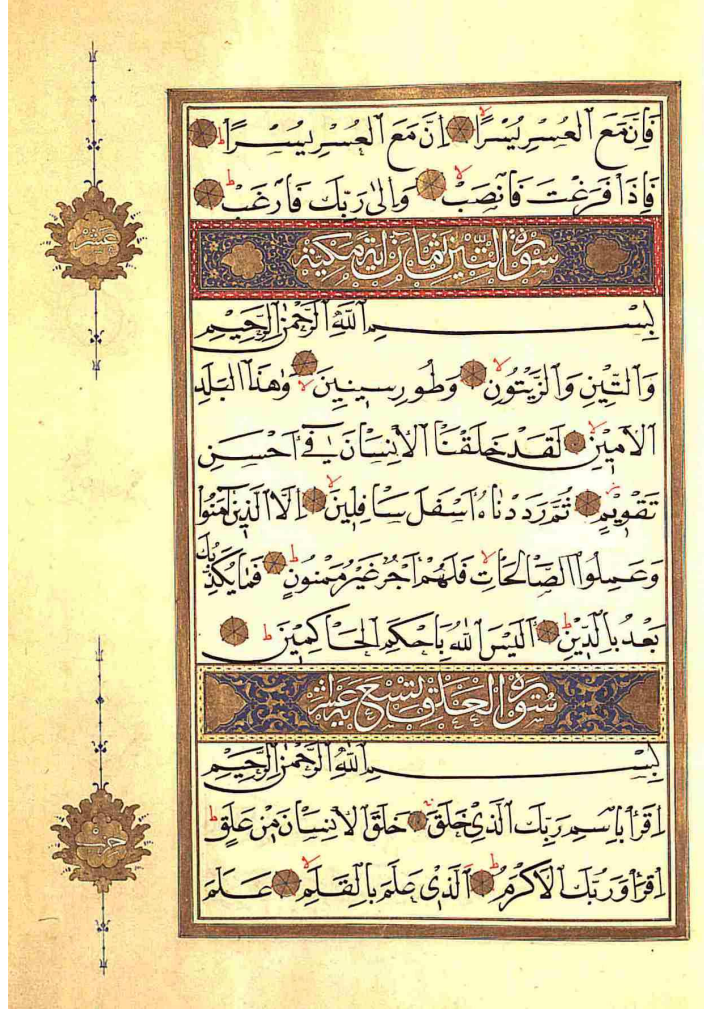 فَاِنَّ مَعَ الْعُسْرِ يُسْرًا اِنَّ مَعَ الْعُسْرِ يُسْرًا
فَاِذَا فَرَغْتَ فَانْصَبْ وَاِلٰى رَبِّكَ فَارْغَبْ
عشر
سورة التين ثمان اية مكية
بِسْمِ اللّٰهِ الرَّحْمٰنِ الرَّحِيمِ
وَالتِّينِ وَالزَّيْتُونِ وَطُورِ سِينِينَ وَهٰذَا الْبَلَدِ
الْاَمِينِ لَقَدْ خَلَقْنَا الْاِنْسَانَ فِي اَحْسَنِ
تَقْوِيمٍ ثُمَّ رَدَدْنَاهُ اَسْفَلَ سَافِلِينَ اِلَّا الَّذِينَ اٰمَنُوا
وَعَمِلُوا الصَّالِحَاتِ فَلَهُمْ اَجْرٌ غَيْرُ مَمْنُونٍ فَمَا يُكَذِّبُكَ
بَعْدُ بِالدِّينِ اَلَيْسَ اللّٰهُ بِاَحْكَمِ الْحَاكِمِينَ
سورة العلق تسع عشر اية
بِسْمِ اللّٰهِ الرَّحْمٰنِ الرَّحِيمِ
اِقْرَاْ بِاسْمِ رَبِّكَ الَّذِي خَلَقَ خَلَقَ الْاِنْسَانَ مِنْ عَلَقٍ
اِقْرَاْ وَرَبُّكَ الْاَكْرَمُ اَلَّذِي عَلَّمَ بِالْقَلَمِ عَلَّمَ
حزب